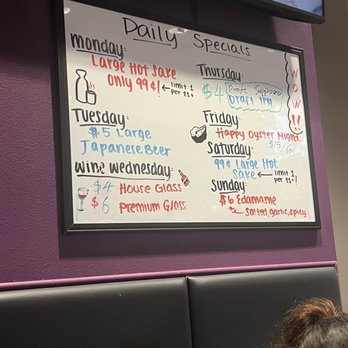 Daily Specials
Monday:
Large Hot Sake
Only 99¢!
limit 1
per 21+
Tuesday:
$5 Large
Japanese Beer
Wine Wednesday:
$4 House Glass
$6 Premium Glass
Thursday:
$4 Draft Sapporo
Draft IPA
Friday
Happy Oyster Night
Saturday:
99¢ Large Hot
Sake
limit 1
per 21+!
Sunday:
$6 Edamame
Salted, garlic, spicy
WOW!!